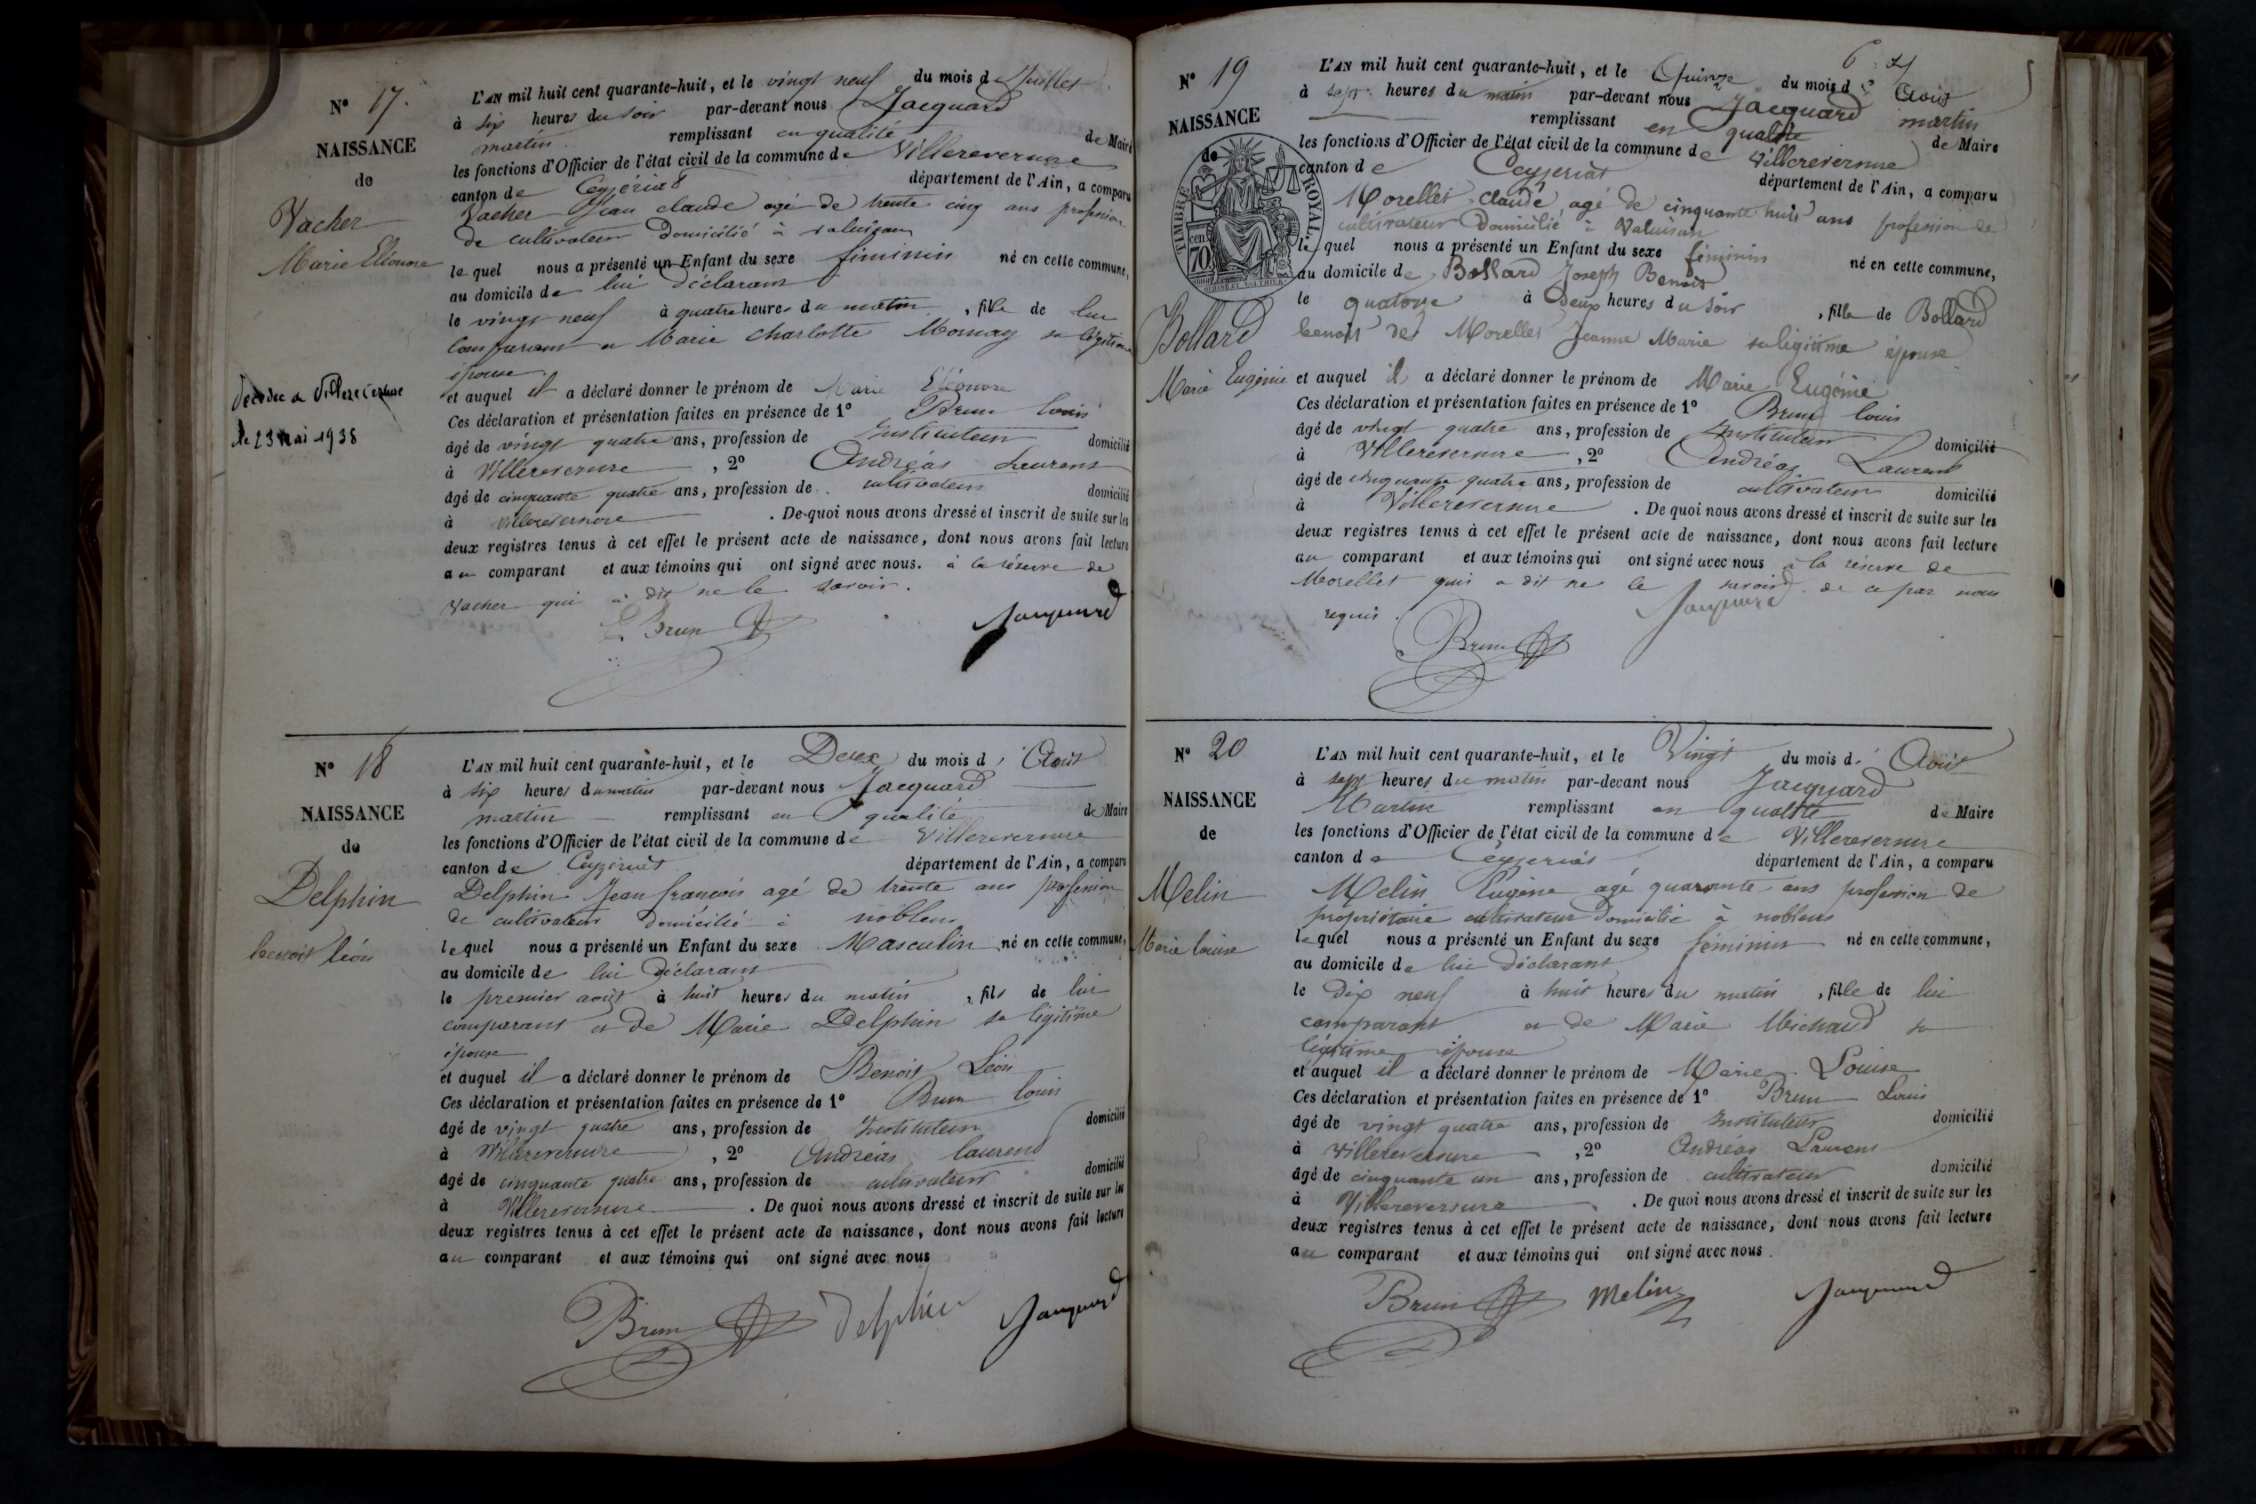 N° 17.
NAISSANCE
de
Vacher
Marie Eléonore
Décédée à Villereversure
le 23 mai 1938
L'AN mil huit cent quarante-huit, et le vingt neuf du mois de Juillet
à six heures du soir par-devant nous Jacquard
martin remplissant en qualité de Maire
les fonctions d'Officier de l'état civil de la commune de Villereversure
canton de Ceyzériat département de l'Ain, a comparu
Vacher Jean claude agé de trente cinq ans profession
de cultivateur Domicilié à
le quel nous a présenté un Enfant du sexe féminin né en cette commune,
au domicile de lui déclarant
le vingt neuf à quatre heures du matin, fille de lui
comparant et Marie Charlotte sa légitime
épouse
et auquel il a déclaré donner le prénom de Marie Eléonore
Ces déclaration et présentation faites en présence de 1° Brun louis
âgé de vingt quatre ans, profession de Instituteur domicilié
à Villereversure, 2° Andréas Laurent
âgé de cinquante quatre ans, profession de cultivateur domicilié
à Villereversure. De quoi nous avons dressé et inscrit de suite sur les
deux registres tenus à cet effet le présent acte de naissance, dont nous avons fait lecture
au comparant et aux témoins qui ont signé avec nous. à la réserve de
Vacher qui a dit ne le savoir.
Brun Jacquard
N° 18
NAISSANCE
de
Delphin
benoit léon
L'AN mil huit cent quarante-huit, et le Deux du mois d'Août
à six heures du matin par-devant nous Jacquard
martin remplissant en qualité de Maire
les fonctions d'Officier de l'état civil de la commune de Villereversure
canton de Ceyzériat département de l'Ain, a comparu
Delphin Jean françois agé de trente ans profession
de cultivateur domicilié à noblens
le quel nous a présenté un Enfant du sexe Masculin né en cette commune,
au domicile de lui déclarant
le premier août à huit heures du matin, fils de lui
comparant et de Marie Delphin sa légitime
épouse
et auquel il a déclaré donner le prénom de Benoit Léon
Ces déclaration et présentation faites en présence de 1° Brun louis
âgé de vingt quatre ans, profession de Instituteur domicilié
à Villereversure, 2° Andréas laurent
âgé de cinquante quatre ans, profession de cultivateur domicilié
à Villereversure. De quoi nous avons dressé et inscrit de suite sur les
deux registres tenus à cet effet le présent acte de naissance, dont nous avons fait lecture
au comparant et aux témoins qui ont signé avec nous
Brun Delphin Jacquard
N° 19
NAISSANCE
de
TIMBRE ROYAL
70 cen
Bollard
Marie Eugénie
L'AN mil huit cent quarante-huit, et le Quinze du mois d'Août
à sept heures du matin par-devant nous Jacquard martin
remplissant en qualité de Maire
les fonctions d'Officier de l'état civil de la commune de Villereversure
canton de Ceyzeriat département de l'Ain, a comparu
Morellet claude agé de cinquante huit ans profession de
cultivateur Domicilié à
le quel nous a présenté un Enfant du sexe féminin né en cette commune,
au domicile de Bollard Joseph Benoit
le quatorze à Deux heures du soir, fille de Bollard
benoit de Morellet Jeanne Marie sa légitime épouse
et auquel il a déclaré donner le prénom de Marie Eugénie
Ces déclaration et présentation faites en présence de 1° Brun louis
âgé de vingt quatre ans, profession de Instituteur domicilié
à Villereversure, 2° Andréas Laurent
âgé de cinquante quatre ans, profession de cultivateur domicilié
à Villereversure. De quoi nous avons dressé et inscrit de suite sur les
deux registres tenus à cet effet le présent acte de naissance, dont nous avons fait lecture
au comparant et aux témoins qui ont signé avec nous à la réserve de
Morellet qui a dit ne le savoir de ce par nous
requis.
Jacquard
Brun
N° 20
NAISSANCE
de
Melin
Marie louise
L'AN mil huit cent quarante-huit, et le Vingt du mois d'Août
à sept heures du matin par-devant nous Jacquard
Martin remplissant en qualité de Maire
les fonctions d'Officier de l'état civil de la commune de Villereversure
canton de Ceyzeriat département de l'Ain, a comparu
Melin Eugène agé quarante ans profession de
propriétaire cultivateur Domicilié à noblens
le quel nous a présenté un Enfant du sexe féminin né en cette commune,
au domicile de lui déclarant
le Dix neuf à huit heures du matin, fille de lui
comparant et de Marie Michaud sa
légitime épouse
et auquel il a déclaré donner le prénom de Marie Louise
Ces déclaration et présentation faites en présence de 1° Brun Louis
âgé de vingt quatre ans, profession de Instituteur domicilié
à Villereversure, 2° Andréas Laurent
âgé de cinquante un ans, profession de cultivateur domicilié
à Villereversure. De quoi nous avons dressé et inscrit de suite sur les
deux registres tenus à cet effet le présent acte de naissance, dont nous avons fait lecture
au comparant et aux témoins qui ont signé avec nous.
Brun Melin Jacquard